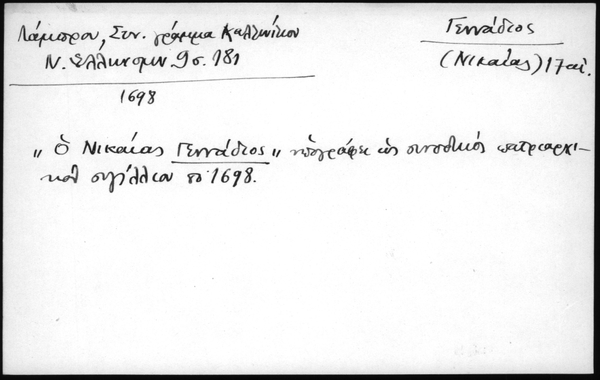 Λάμπρου, Συν. γράμμα Καλλινίκου
Ν. Ἑλληνομν. 9 σ. 181
1698
Γεννάδιος
(Νικαίας) 17 αἰ.
„ Ὁ Νικαίας Γεννάδιος „ ὑπογράφει ὡς συνοδικός πατριαρχι-
κοῦ σιγιλλίου τῷ 1698.